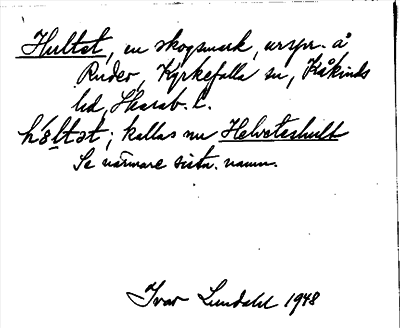 Hultet, en skogsmark, urspr. å
Ruder, Kyrkefalla sn, Kåkinds
hd, Skarab. l.
hultət; kallas nu Helveteshult
Se närmare sistn. namn.
Ivar Lundahl 1948